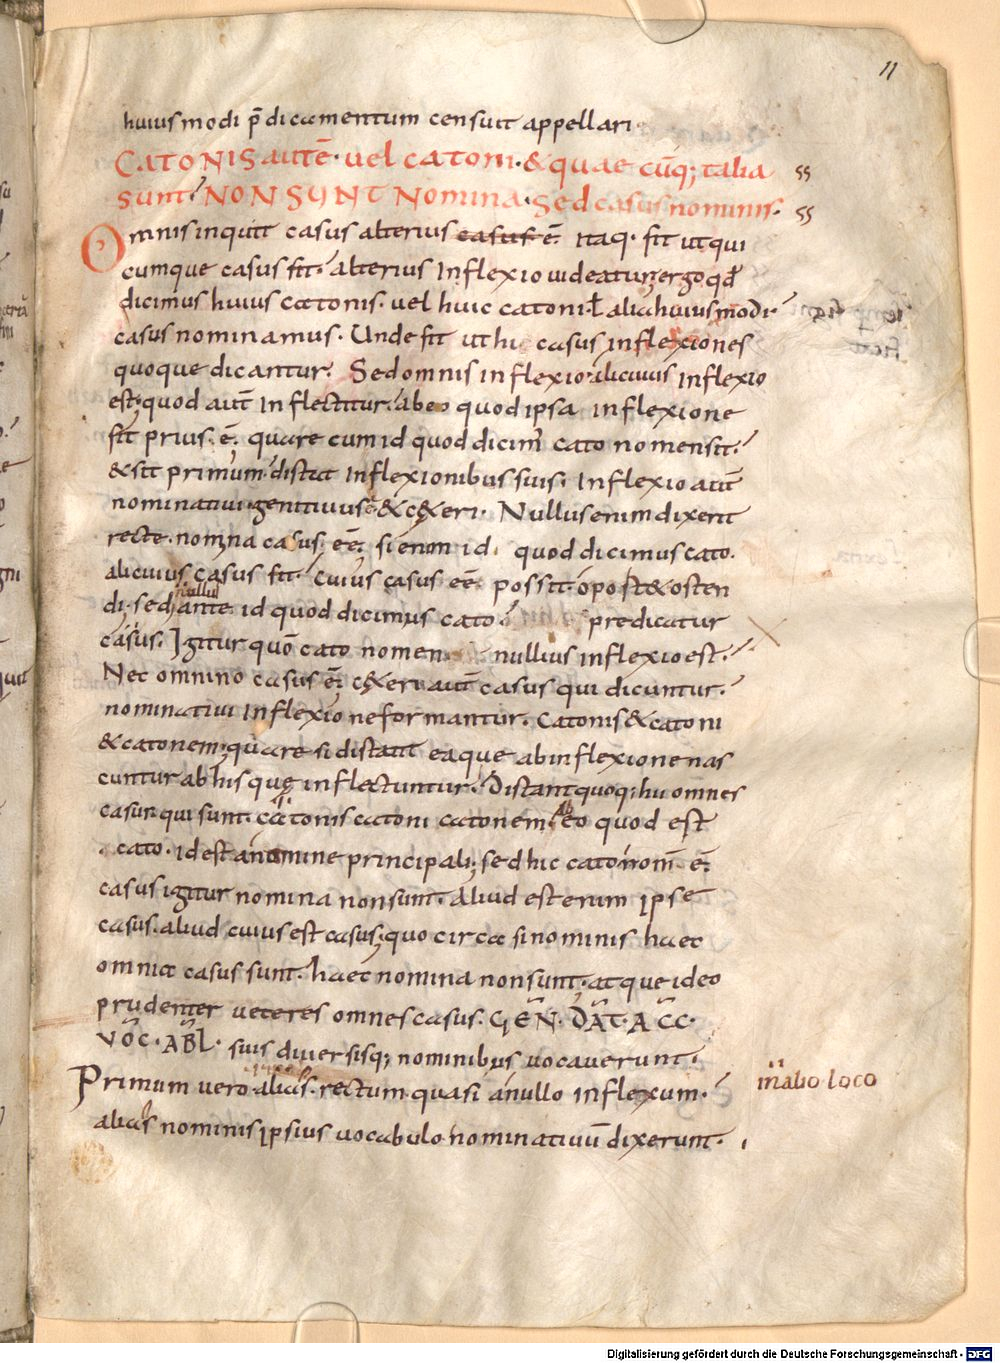 11
huiusmodi p̄dicamentum censuit appellari
CATONIS autē· vel catoni·&quae cūq; talia
sunt· NON SUNT Nomina· Sed casus nominis·
Omnis inquit casus alterius casus ē· itaq· fit ut qui
cumque casus fit· alterius Inflexio videatur; ergo qđ
dicimus huius catonis· vel huic catoni· ł alia huiusmodi·
casus nominamus· Unde fit ut hi casus inflexiones
quoque dicantur· Sed omnis inflexio alicuius inflexio
est; quod aut̄ Inflectitur· abeo quod ipsa inflexione
fit prius· ē· quare cum id quod dicim̄ cato nomen sit·
&sit primum· distat Inflexionibus suis· Inflexio aut̄
nominativi· genitivus &c&eri· Nullus enim dixerit
recte· nomina casus eē· si enim id· quod dicimus cato·
alicuius casus fit· Cuius casus eē· possit· o post& osten
di· sed nullus ante id quod dicimus cato· predicatur
casus· Igitur quō cato nomen nullius inflexio est·
Nec omnino casus ē· c&eri aut̄ casus qui dicuntur·
nominativi Inflexione formantur· Catonis & catoni
& catonem; quare si distant ea que ab inflexione nas
cuntur ab his que inflectuntur· Distant quoq; hi omnes
casus qui sunt· catonis catoni catonem· ab eo quod est
cato· id est a nomine principali; sed hic cato nom̄ ē·
casus igitur nomina non sunt· Aliud est enim ipse
casus· aliud cuius est casus; quo circa si nominis haec
omnia casus sunt· haec nomina non sunt· atque ideo
prudenter veteres omnes casus· GEN· DAT· ACC·
VOC· ABL· suis diversisq; nominibus vocaverunt·
Primum vero· alias· rectum· quasi a nullo inflexum·
in alio loco
alias nominis ipsius vocabulo nominativū dixerunt·
Digitalisierung gefördert durch die Deutsche Forschungsgemeinschaft - DFG